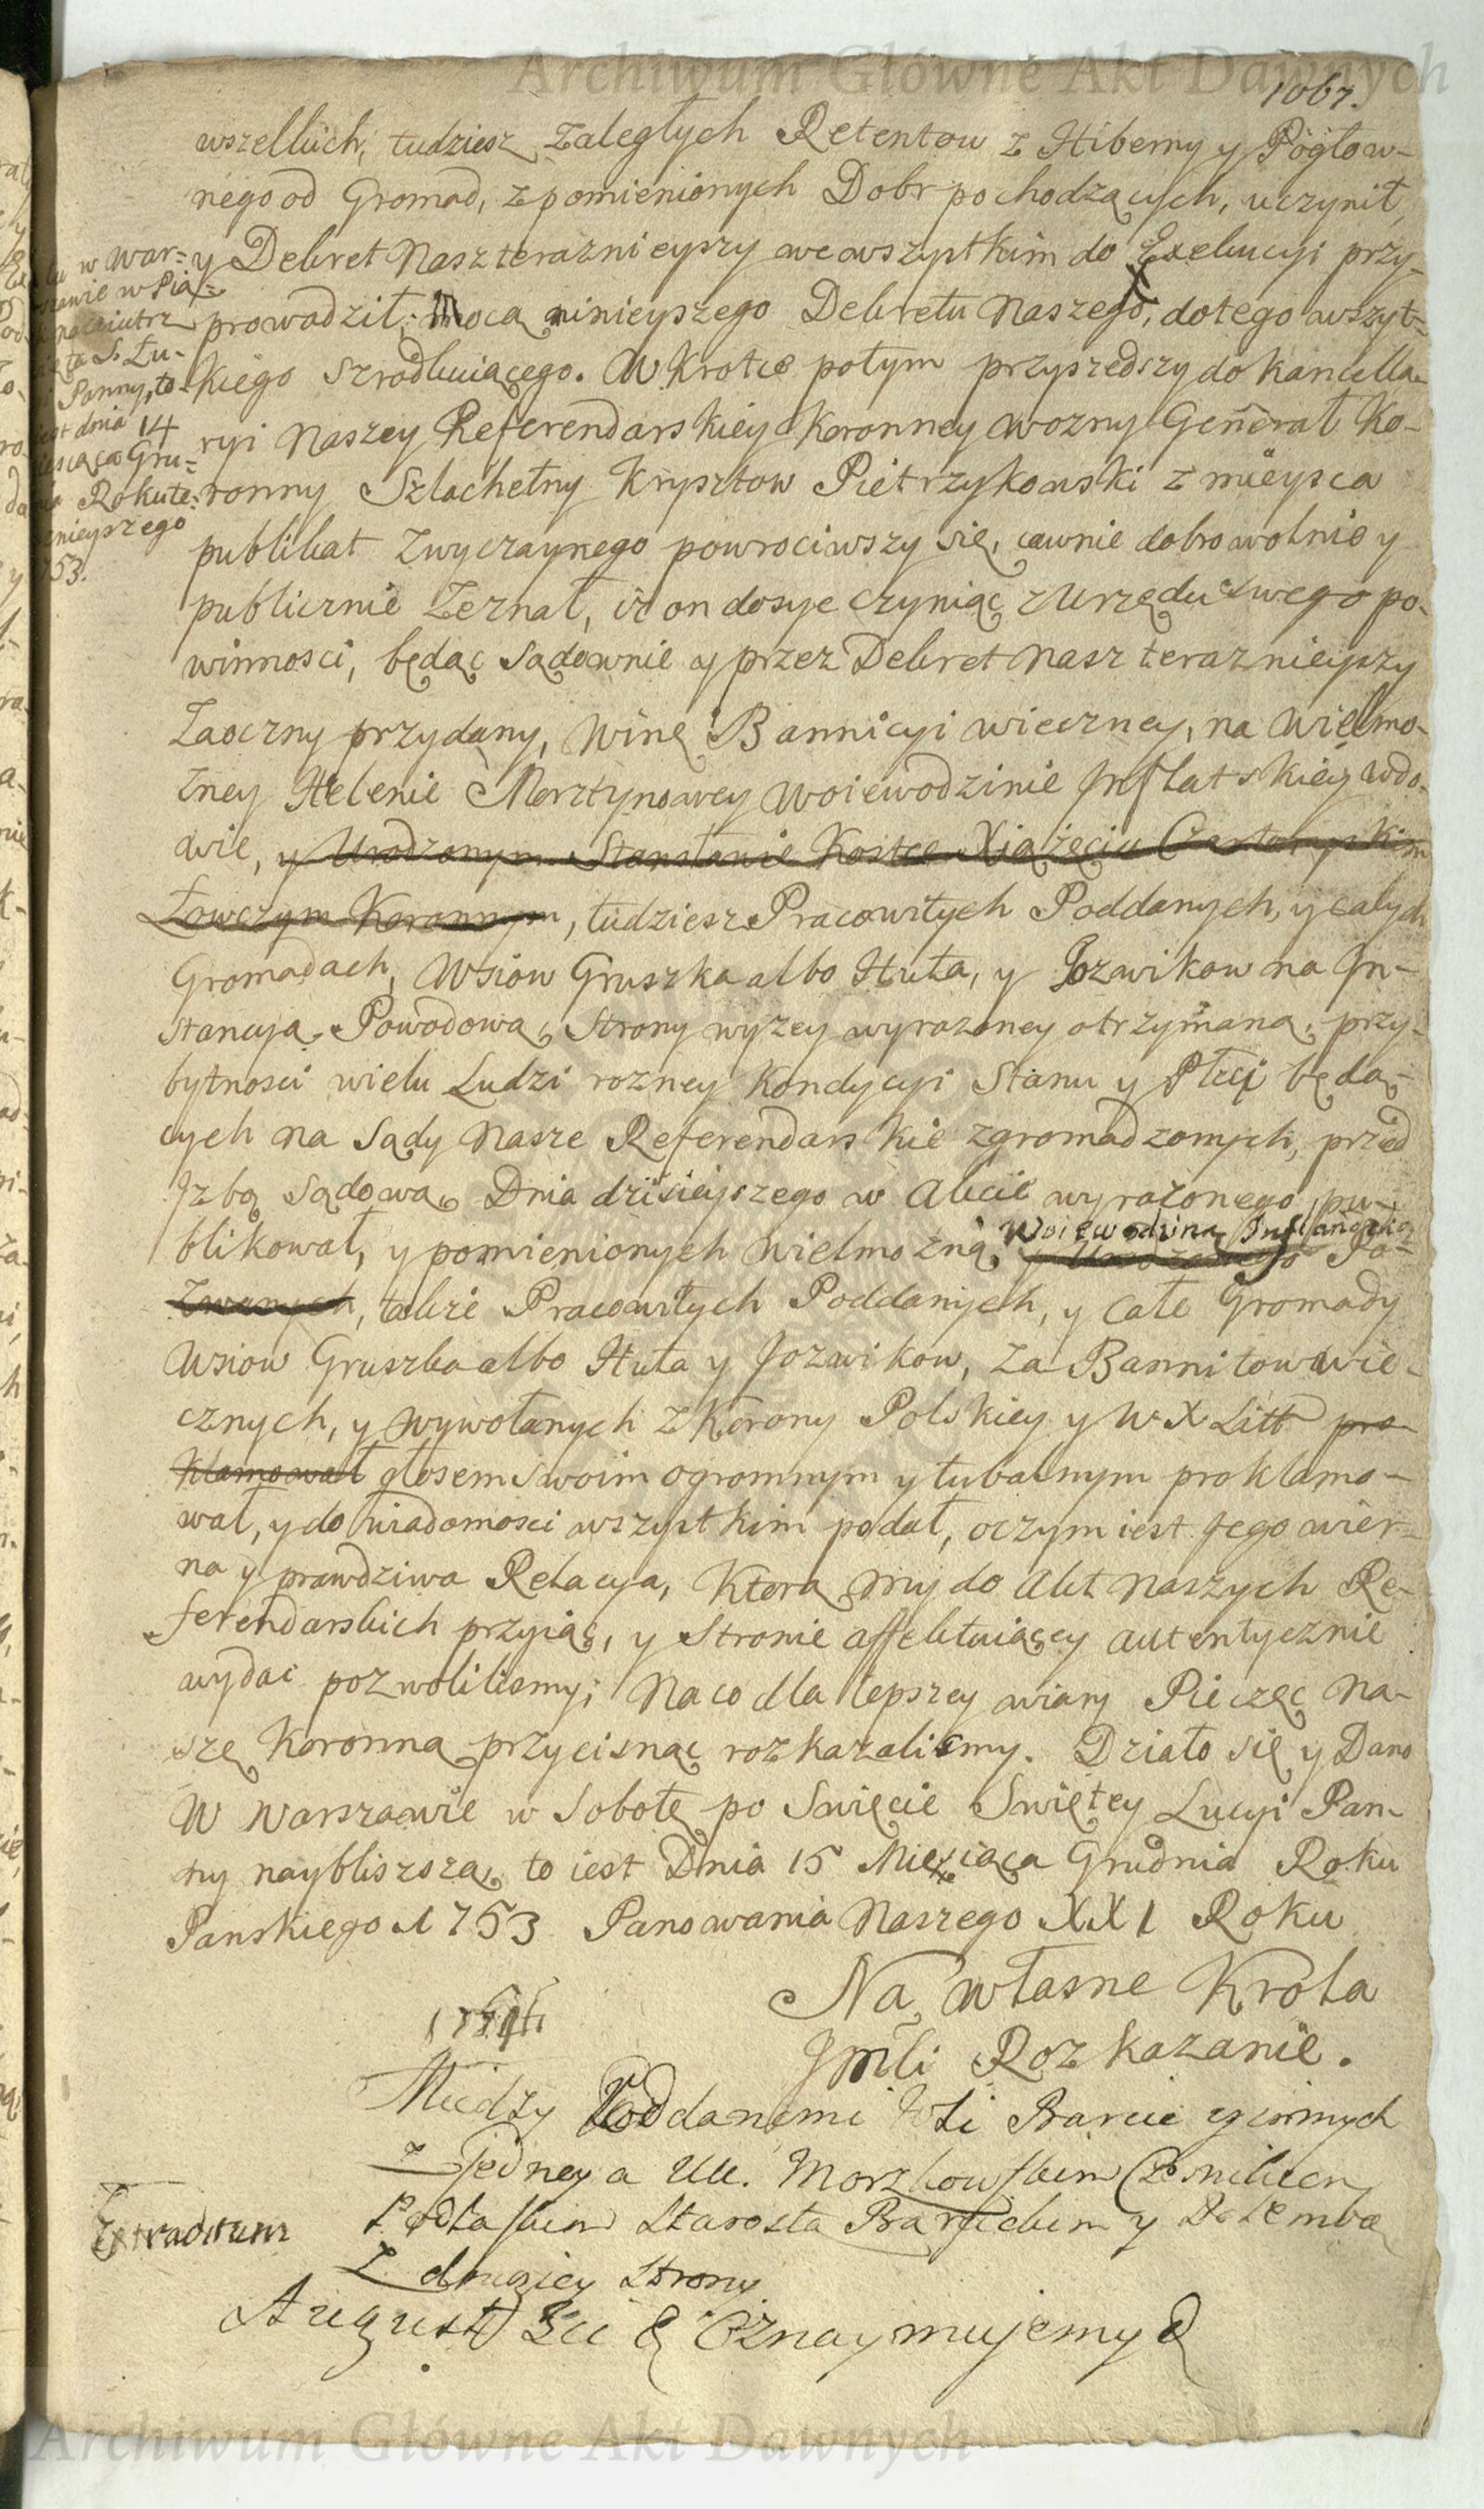 Archiwum Główne Akt Dawnych
1067.
wszelkich, tudziesz zaległych Retentow z Hiberny y Pogłow-
nego od Gromad, z pomienionych Dobr pochodzących, uczynił,
y Dekret Nasz teraznieyszy we wszystkim do Exekucyi przy-
prowadził; Mocą ninieyszego Dekretu Naszego, do tego wszyt-
kiego szrodkuiącego. W Krotce potym przyszedszy do Kancella-
ryi Naszey Referendarskiey Koronney Wozny Generał Ko-
ronny Szlachetny Krysztow Pietrzykowski z mieysca
publikat zwyczaynego powrociwszy się, iawnie dobrowolnie y
publicznie zeznał, iż on dosyc czyniąc z Urzędu swego po-
winnosci, będąc Sądownie y przez Dekret Nasz teraznieyszy
Zaoczny przydany, Winę Bannicyi wieczney, na Wielmo-
żney Helenie Morsztynowey Woiewodzinie Inflatskiey Wdo-
wie, y Urodzonym Stanisławie Kostce Xiążęciu Czartoryskim
Łowczym Koronnym, tudziesz Pracowitych Poddanych, y całych
Gromadach, Wsiow Gruszka albo Huta, y Jozwikow na In-
stancyą Powodową Strony wyzey wyrazoney otrzymaną, przy-
bytnosci wielu Ludzi rozney Kondycyi Stanu y Płci będą-
cych na Sądy Nasze Referendarskie zgromadzonych, przed
Izbą Sądową Dnia dzisieyszego w Akcie wyrazonego pu-
blikował, y pomienionych Wielmożną Woiewodzinę Inflandzką y Urodzonego Po-
zwanych, takze Pracowitych Poddanych, y całe Gromady
Wsiow Gruszka albo Huta y Jozwikow, za Bannitow wie-
cznych, y wywołanych z Korony Polskiey y W X Litt pro-
klamował głosem swoim ogromnym y tubalnym proklamo-
wał, y do wiadomosci wszystkim podał, o czym iest Jego wier-
na y prawdziwa Relacya, Ktorą my do Akt Naszych Re-
ferendarskich przyiąć, y Stronie affektuiącey autentycznie
wydać pozwolilismy; Na co dla lepszey wiary Pieczęc Na-
szę Koronną przycisnąc rozkazalismy. Działo się y Dano
W Warszawie w Sobotę po Swięcie Swiętey Lucyi Pan-
ny naybliszszą, to iest Dnia 15 Miesiąca Grudnia Roku
Panskiego 1753 Panowania Naszego XXI Roku
Na własne Krola
Jmśći Rozkazanie.
w War-
szawie w Pią-
nazaiutrz
S. Łu-
Panny, to
iest dnia 14
iesiąca Gru-
Roku te-
znieyszego
753.
Miedzy Poddanemi Wsi Barcie y innych
z Jedney a Ur. Morzkowskim Czesnikiem
Podlaskim Starostą Barcickim y Dołembą
Z drugiey Strony
Extraditum
August 3ci & Oznaymujemy &
Archiwum Główne Akt Dawnych